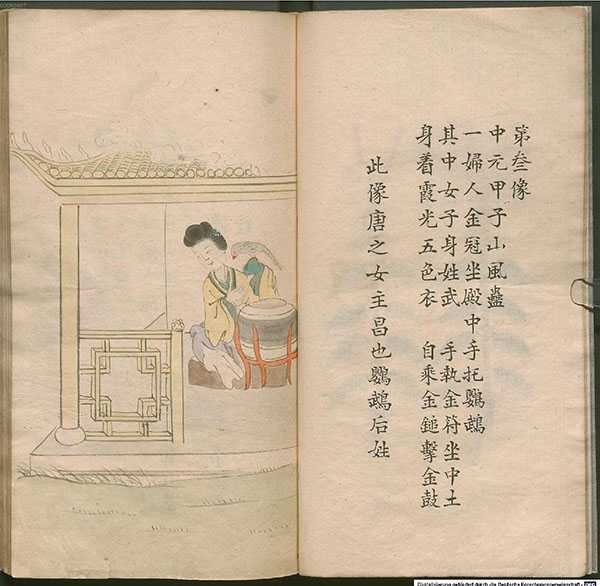 第叁像
中元甲子山風蠱
一婦人金冠坐殿中手托鸚鵡
其中女子身姓武 手執金符坐中土
身着霞光五色衣 自乘金鎚擊金鼓
此像唐之女主昌也鸚鵡后姓
Digitalisierung gefördert durch die Deutsche Forschungsgemeinschaft - DFG